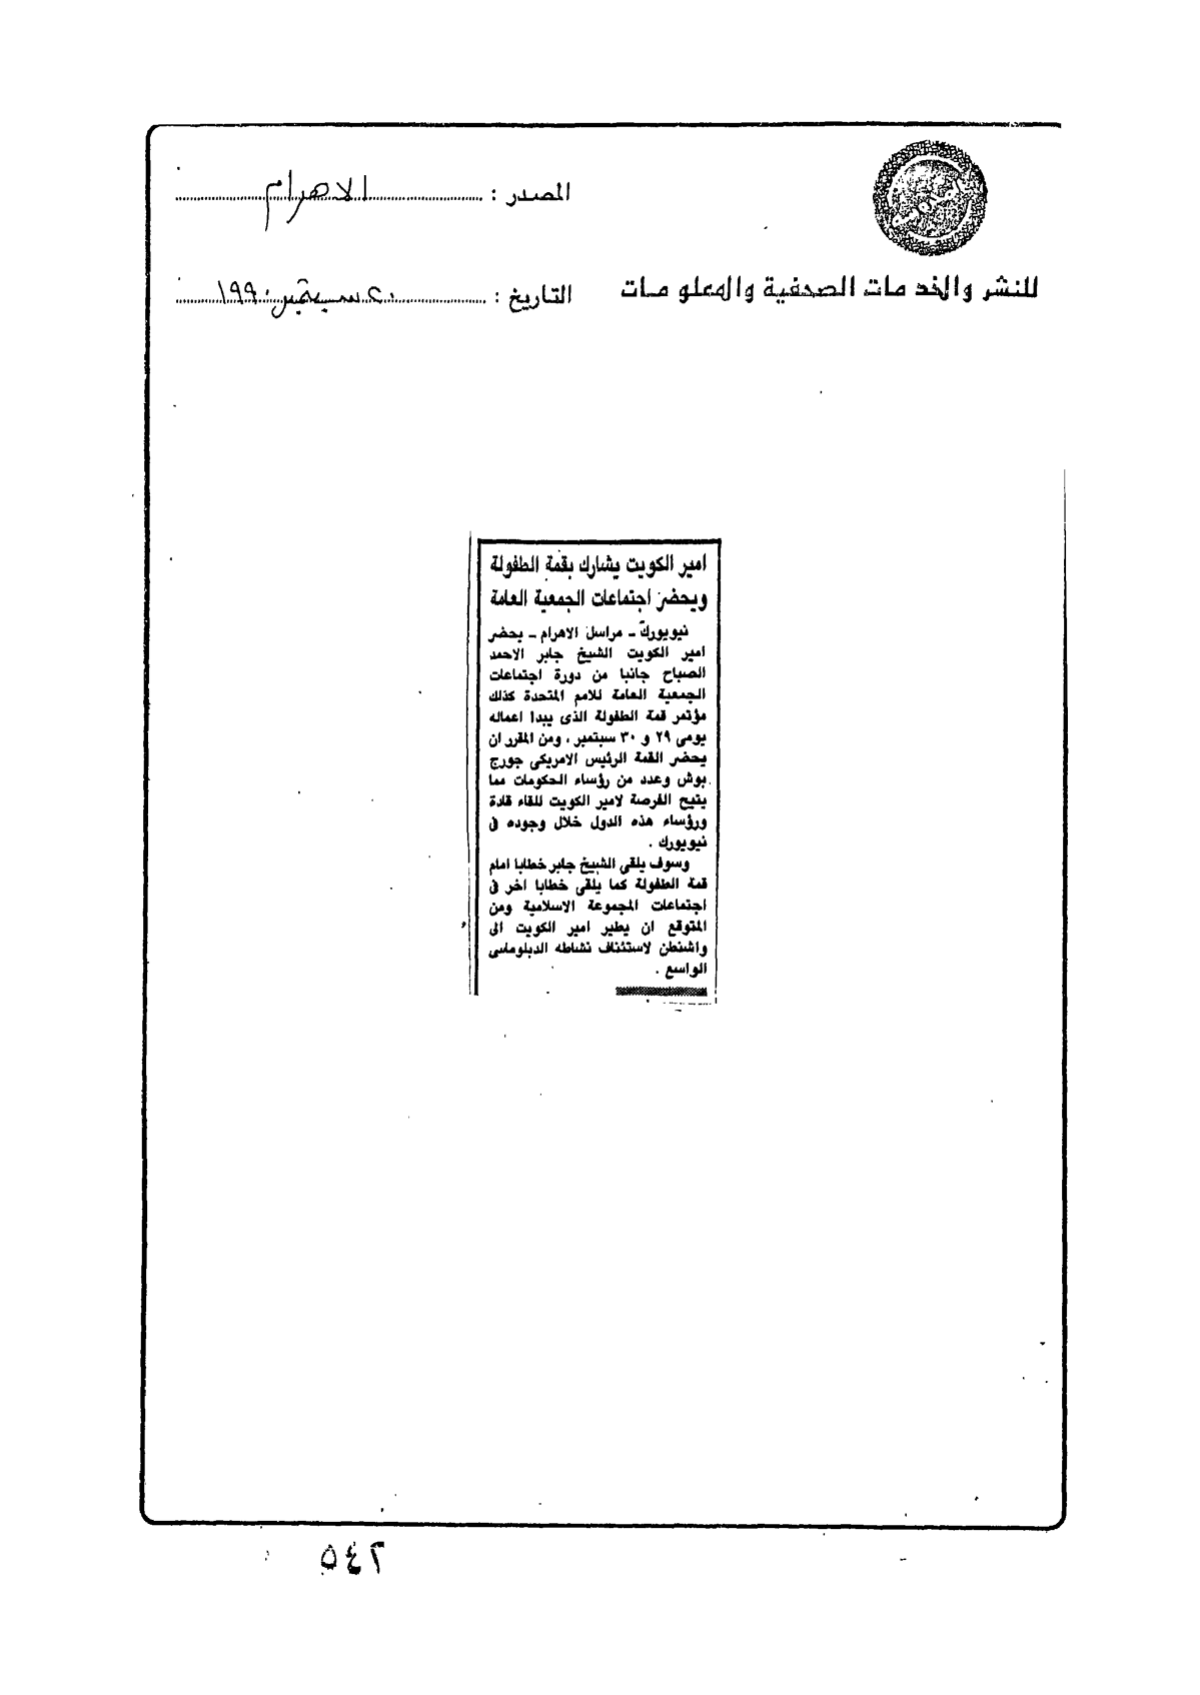 المصدر : الاهرام
للنشر والخدمات الصحفية والمعلومات
التاريخ : ٢٠ سبتمبر ١٩٩٠
امير الكويت يشارك بقمة الطفولة
ويحضر اجتماعات الجمعية العامة
نيويورك - مراسل الاهرام - يحضر
امير الكويت الشيخ جابر الاحمد
الصباح جانبا من دورة اجتماعات
الجمعية العامة للامم المتحدة كذلك
مؤتمر قمة الطفولة الذى يبدا اعماله
يومى ٢٩ و ٣٠ سبتمبر ، ومن المقرر ان
يحضر القمة الرئيس الامريكى جورج
بوش وعدد من رؤساء الحكومات مما
يتيح الفرصة لامير الكويت للقاء قادة
ورؤساء هذه الدول خلال وجوده فى
نيويورك .
وسوف يلقى الشيخ جابر خطابا امام
قمة الطفولة كما يلقى خطابا اخر فى
اجتماعات المجموعة الاسلامية ومن
المتوقع ان يطير امير الكويت الى
واشنطن لاستئناف نشاطه الدبلوماسى
الواسع .
٥٤٢